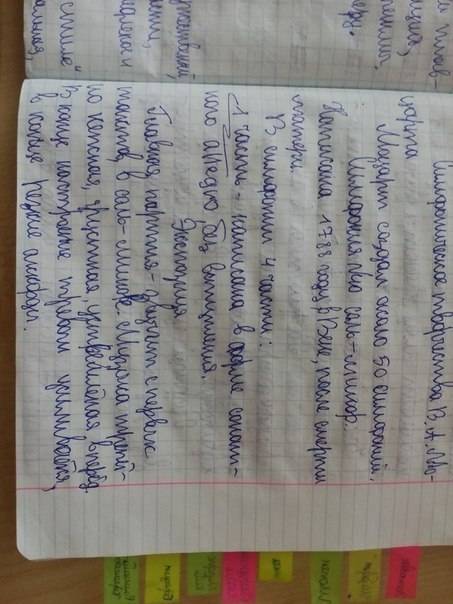 Симфоническое творчество В.А.Мо-
царта
Моцарт создал около 50 симфоний.
Симфония №40 соль-минор.
Написана 1788 году в Вене, после смерти
матери
В симфонии 4 части:
1 часть - написана в форме сонат-
ного аллегро без вступления.
Экспозиция
Главная партия - звучит с первых
тактов, в соль-миноре. Музыка
но нежная, грустная, вперёд.
В конце настроение тревоги усиливается,
в конце аккорды.